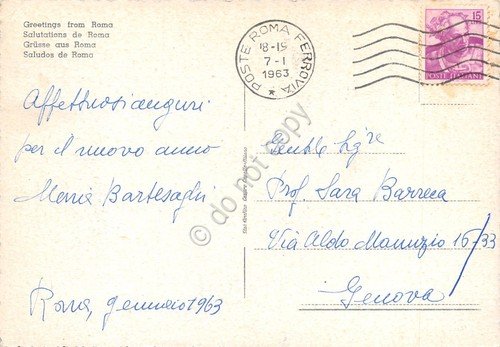 Greetings from Roma
Salutations de Roma
Grüsse aus Roma
Saludos de Roma
POSTE ROMA FERROVIA
18-19
7-1
1963
15
POSTE ITALIANE
Affettuosi auguri
per il nuovo anno
Maria Bartesaghi
Roma, gennaio 1963
Gentile Sig.re
Prof. Sara Barreca
Via Aldo Manuzio 15/33
Genova
do not copy